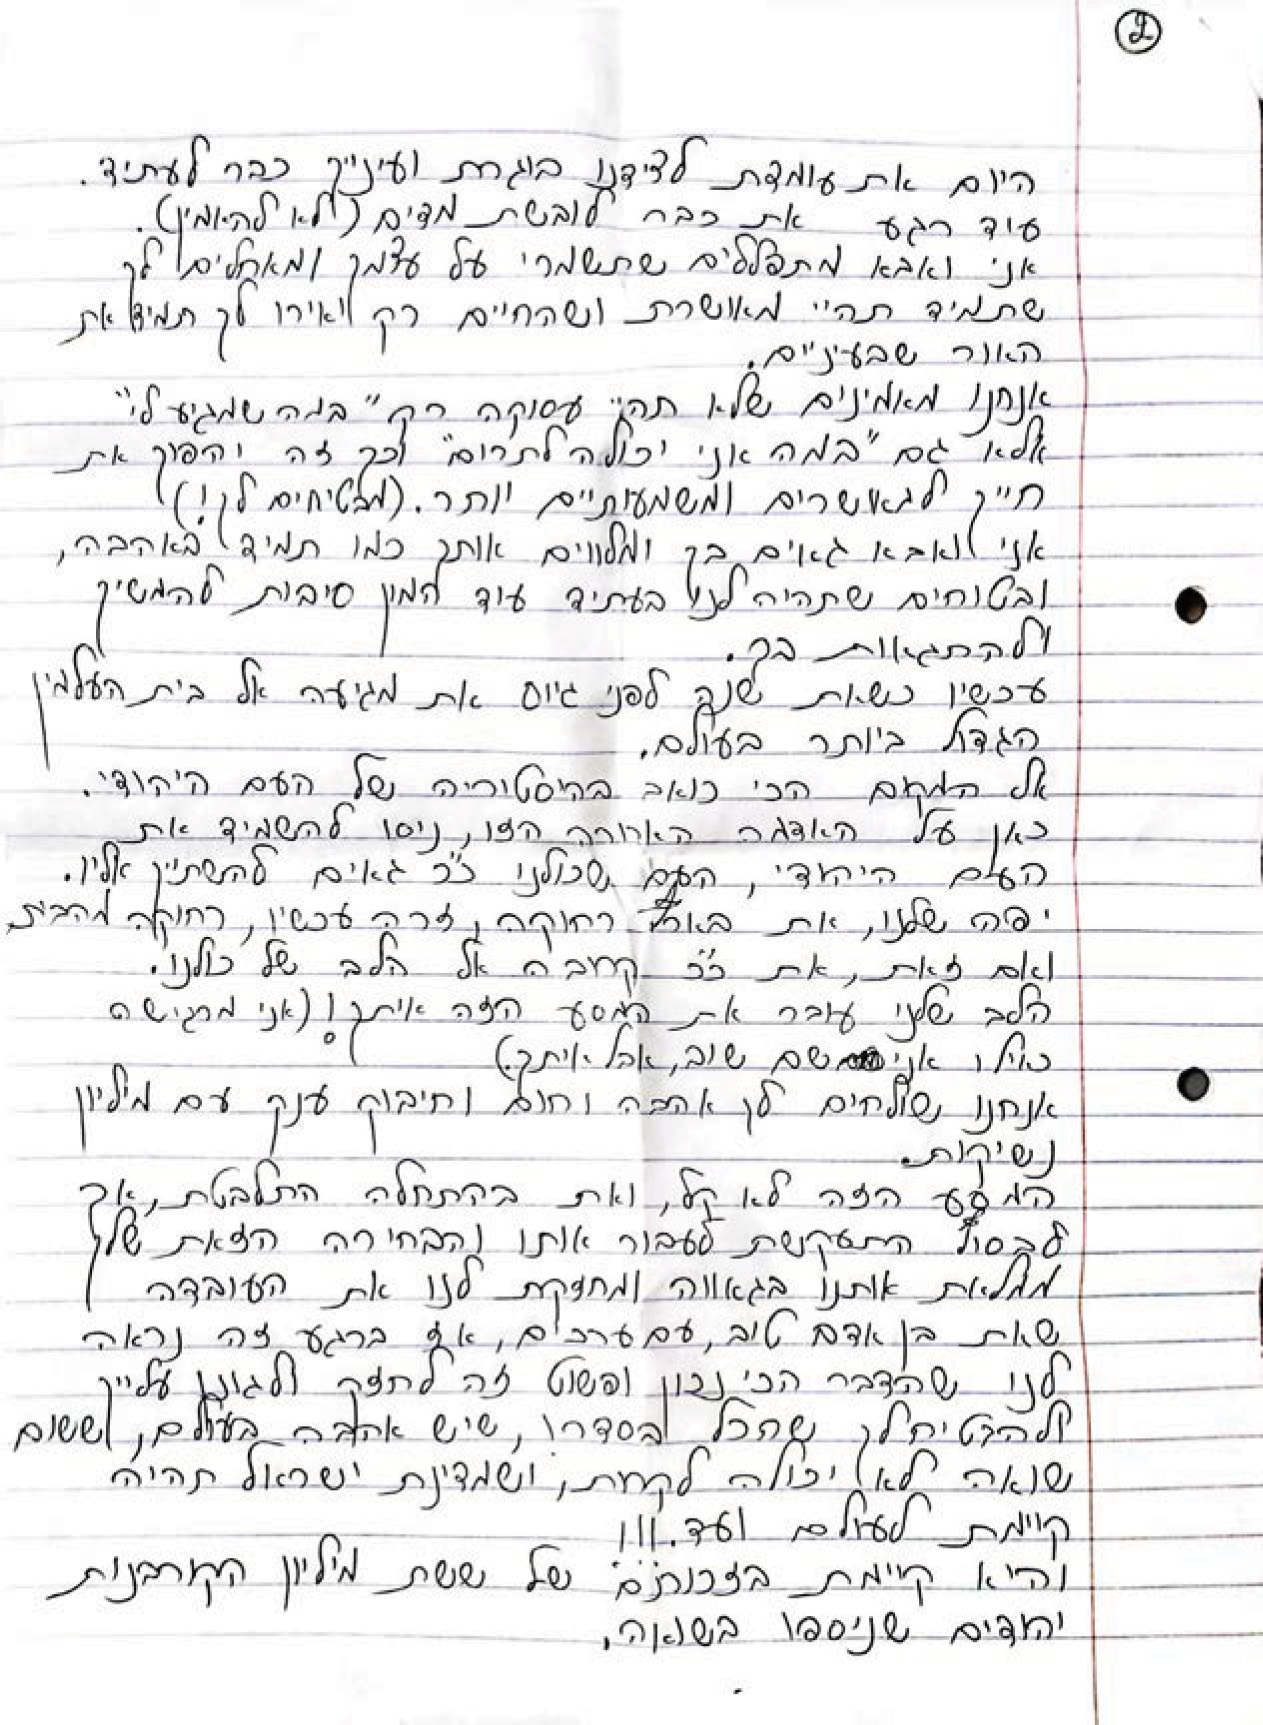 2
היום את עומדת לצידנו בוגרת ועינייך כבר לעתיד.
עוד רגע את כבר לובשת מדים (לא להאמין).
אני ואבא מתפללים שתשמרי על עצמך ומאחלים לך
שתמיד תהיי מאושרת ושהחיים רק יאירו לך תמיד את
האור שבעיניים.
אנחנו מאמינים שלא תהיי עסוקה רק "במה שמגיע לי"
אלא גם "במה אני יכולה לתרום" וכך זה יהפוך את
חייך למאושרים ומשמעותיים יותר. (מבטיחים לך!)
אני ואבא גאים בך ומלווים אותך כמו תמיד באהבה,
ובטוחים שתהיה לנו בעתיד עוד המון סיבות להמשיך
ולהתגאות בך.
עכשיו כשאת שנה לפני גיוס את מגיעה אל בית העלמין
הגדול ביותר בעולם.
אל המקום הכי כואב בהיסטוריה של העם היהודי.
כאן על האדמה הארורה הזו, ניסו להשמיד את
העם היהודי, העם שכולנו כ"כ גאים להשתייך אליו.
יפה שלנו, את בארץ רחוקה, זרה עכשיו, רחוקה מהבית
ואם זאת, את כ"כ קרובה אל הלב של כולנו.
הלב שלנו עובר את המסע הזה איתך! (אני מרגישה
כאילו אני שם שוב, אבל איתך.)
אנחנו שולחים לך אהבה וחום וחיבוק ענק עם מיליון
נשיקות.
המסע הזה לא קל, ואת בהתחלה התלבטת, אך
לבסוף התעקשת לעבור אותו והבחירה הזאת שלך
ממלאת אותנו בגאווה ומחזקת לנו את העובדה
שאת בן אדם טוב, עם ערכים, אז ברגע זה נראה
לנו שהדבר הכי נכון ופשוט זה לחזק ולגונן עלייך
ולהבטיח לך שהכל בסדר, שיש אהבה בעולם, ששום
שואה לא יכולה לקרות, ושמדינת ישראל תהיה
קיימת לעולם ועד.!!!
והיא קיימת בזכותם של ששת מיליון הקורבנות
יהודים שניספו בשואה.